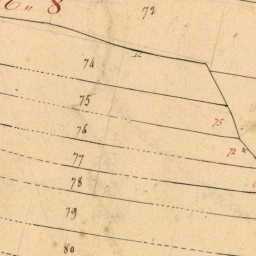 8
73
74
75
75
76
72
77
78
79
80